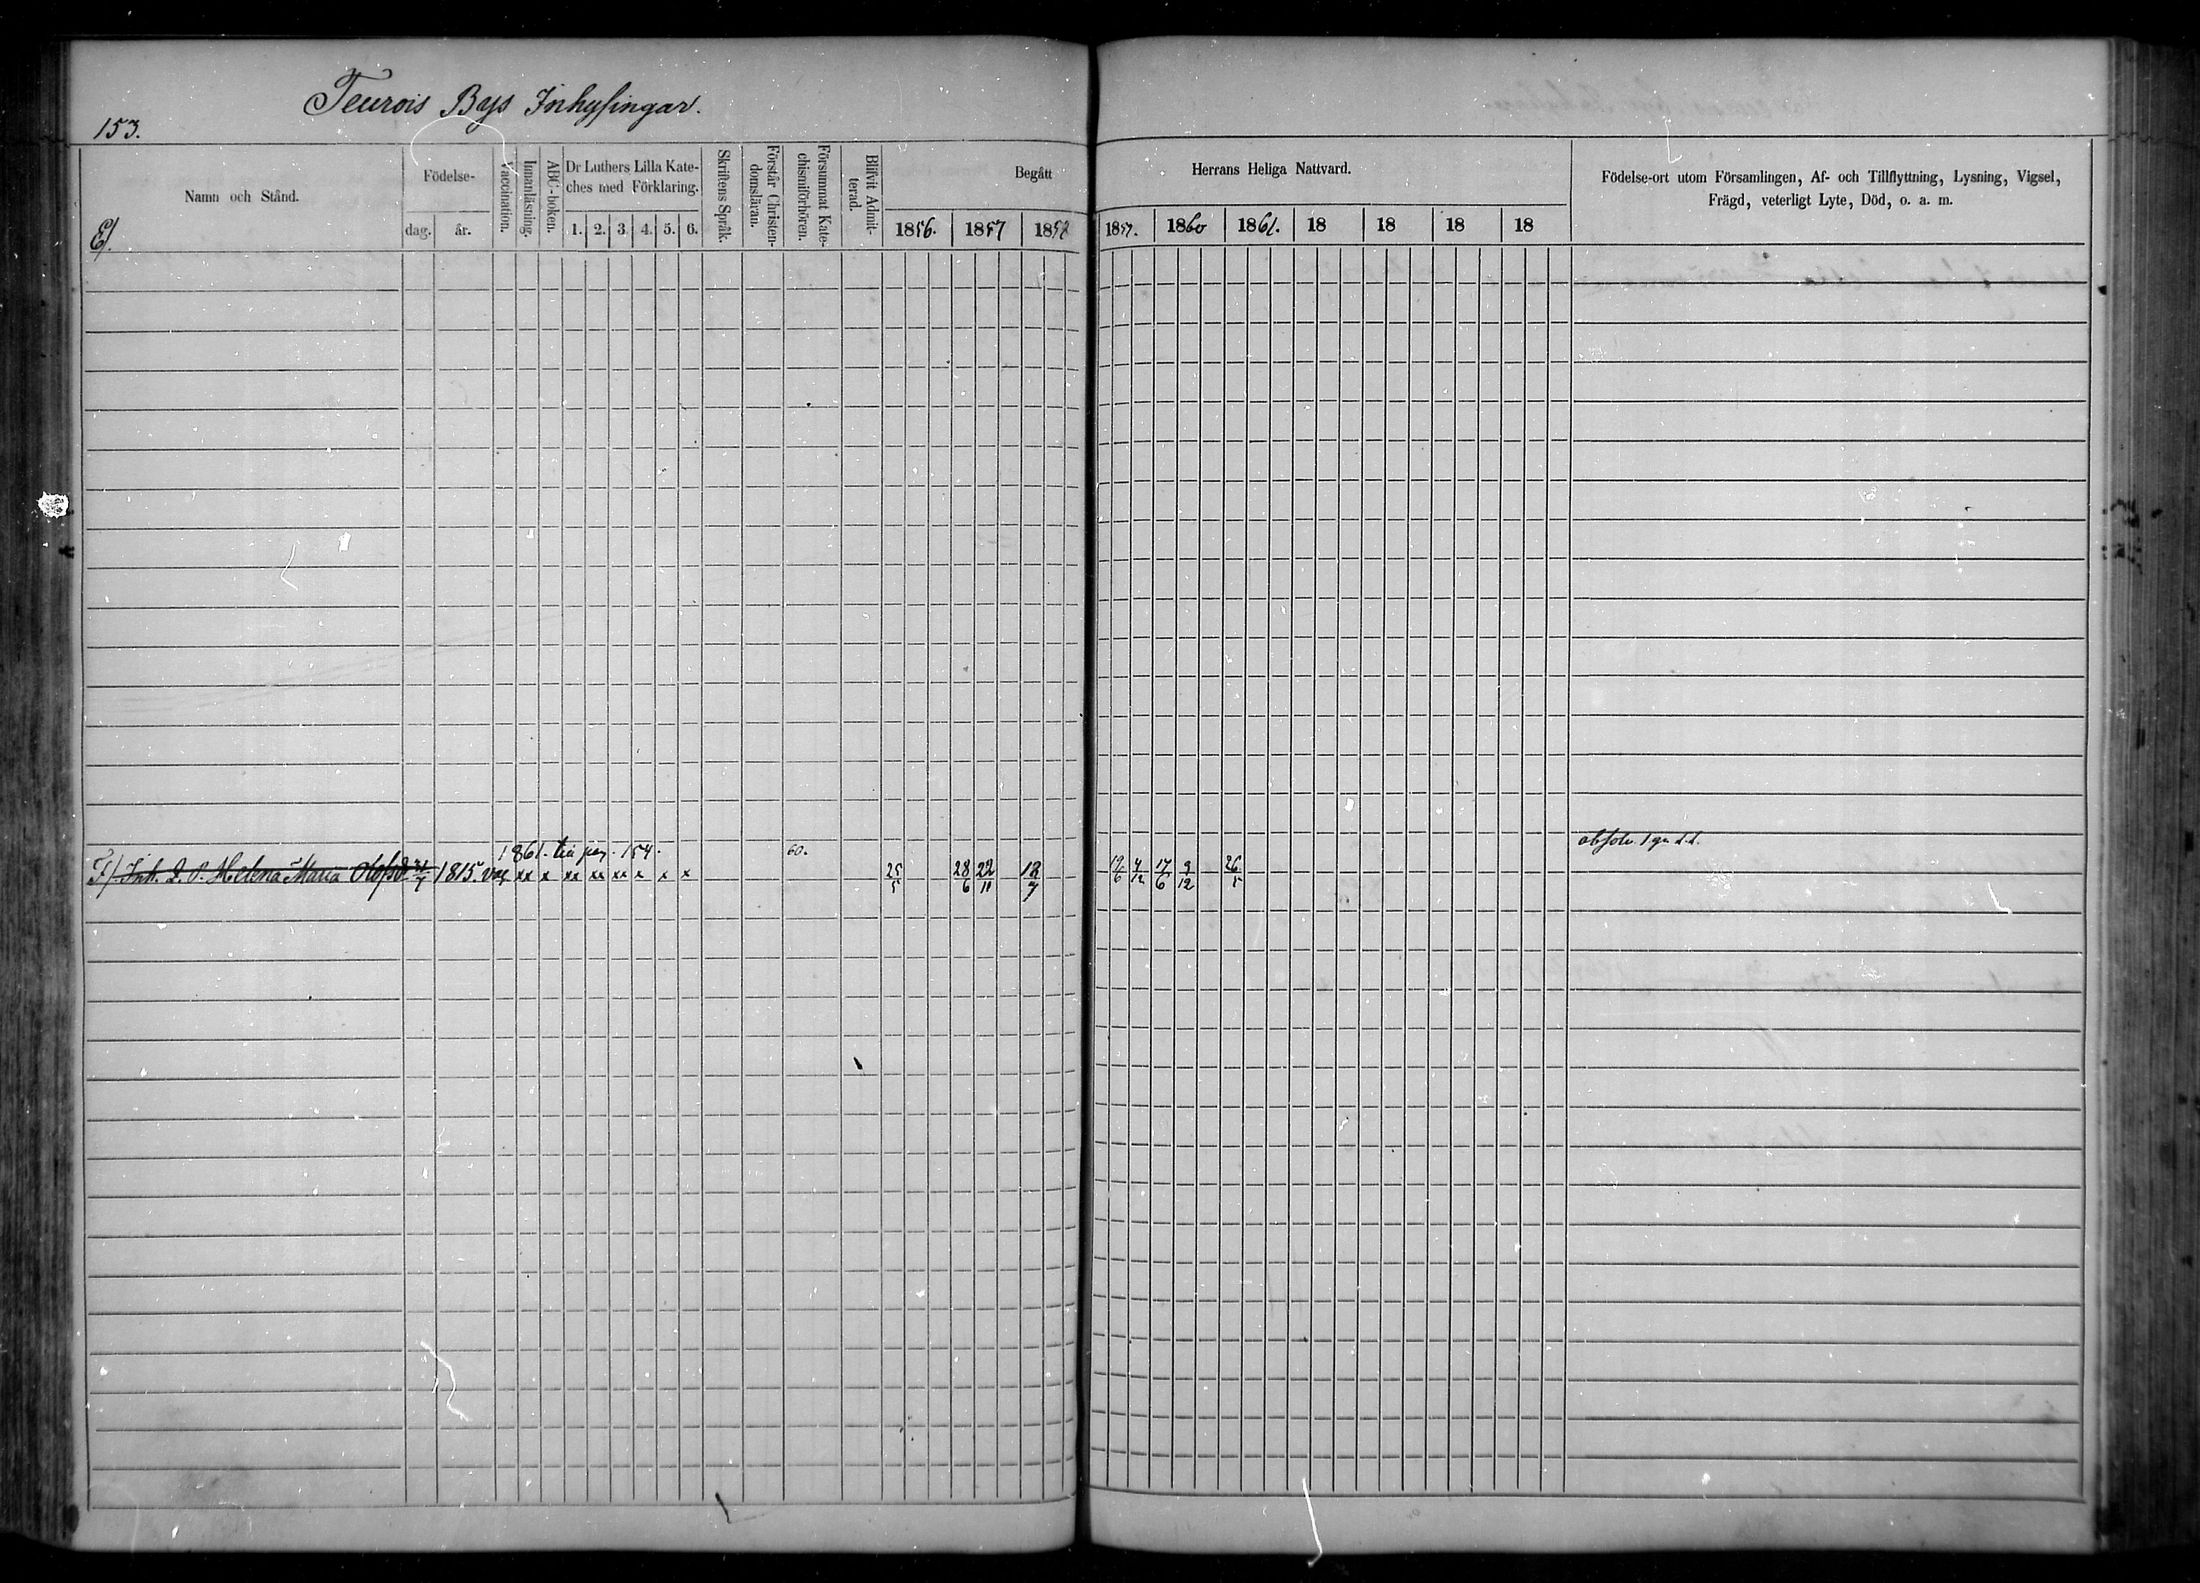 Teurois Bys Inhysingar.
153.
Namn och Stånd.
Födelse-
dag. år.
Vaccination.
Innanläsning.
ABC-boken.
Dr Luthers Lilla Kate-
ches med Förklaring.
1. 2. 3. 4. 5. 6.
Skriftens Språk.
Förstår Christen-
domsläran.
Försummat Kate-
chismiförhören.
Blifvit Admit-
terad.
Begått Herrans Heliga Nattvard.
1856. 1857 1858 1859. 1860 1861. 18 18 18 18
Födelse-ort utom Församlingen, Af- och Tillflyttning, Lysning, Vigsel,
Frägd, veterligt Lyte, Död, o. a. m.
E/.
1861. till pag. 154. 60. absolv. 1 gn
F/ Inh. Helena Maria Olofsd 1815. vac x x x x x x x x x x x x 25/5 28/6 22/11 18/7 19/6 4/12 17/6 9/12 26/5